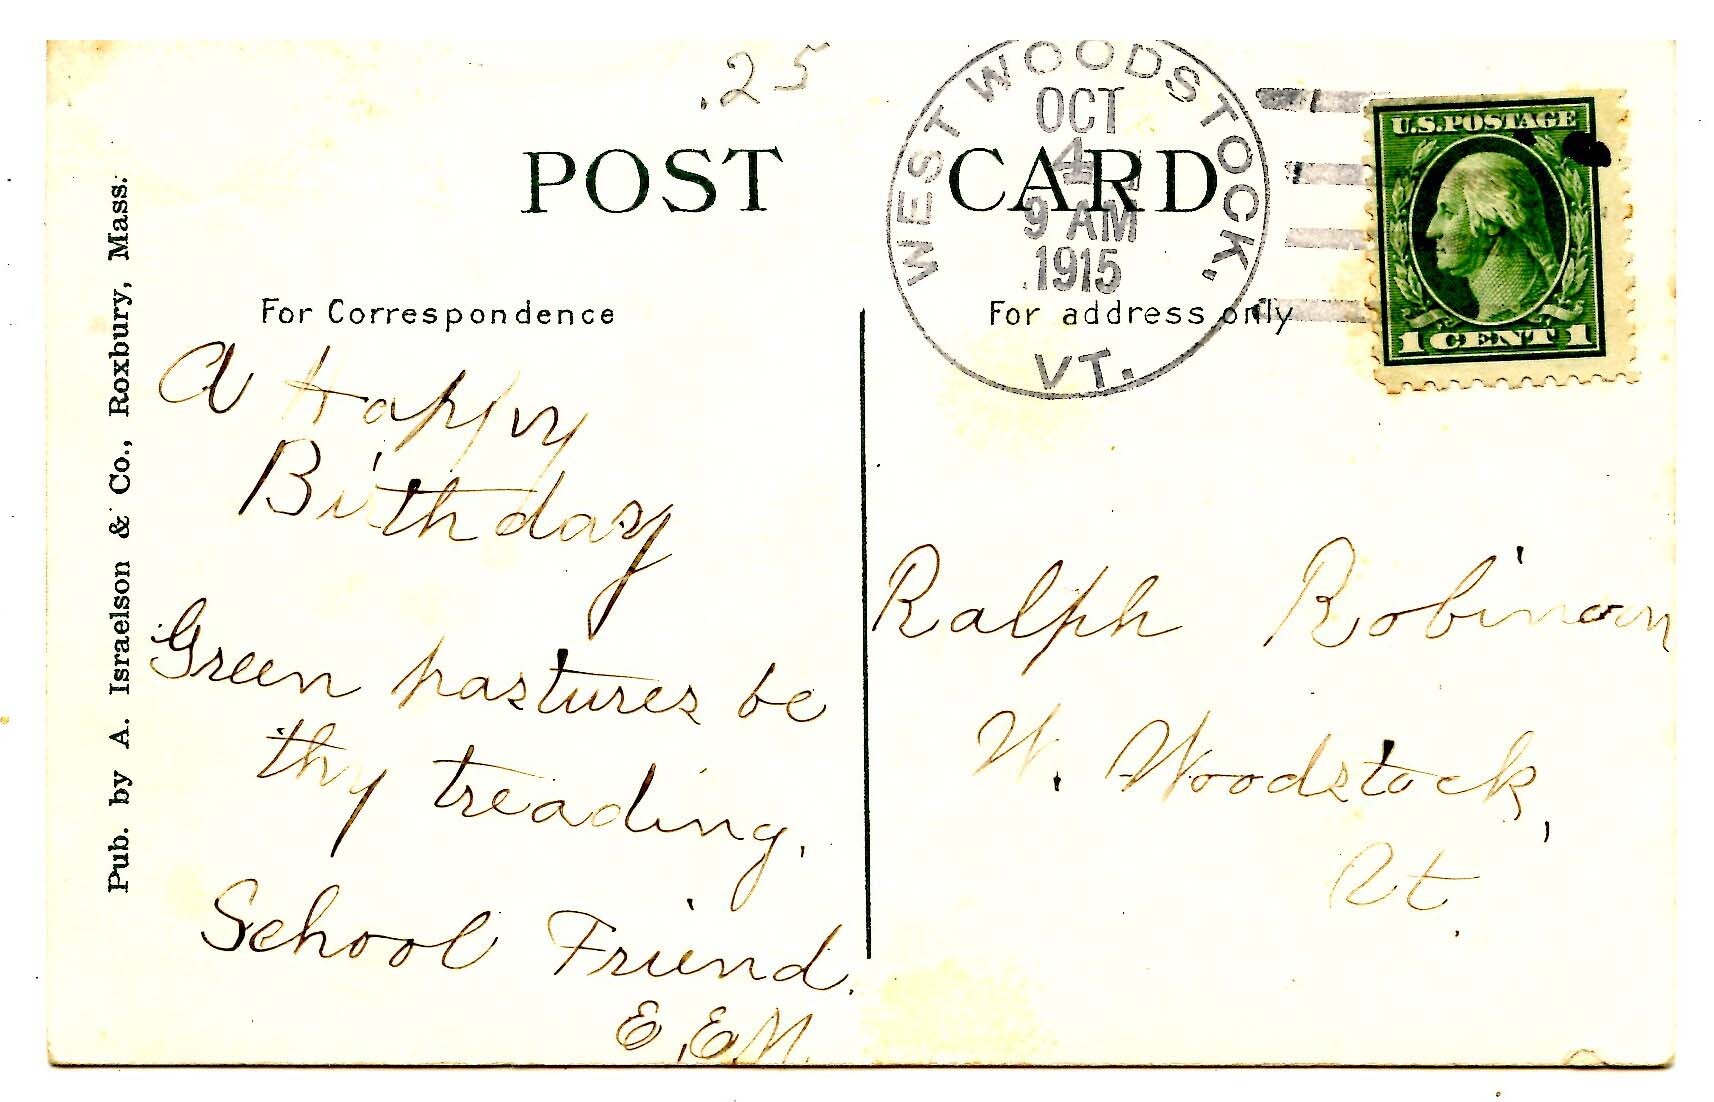 .25
WEST WOODSTOCK,
OCT
4
9 AM
1915
VT.
U.S. POSTAGE
1 CENT 1
POST CARD
For Correspondence
For address only
Pub. by A. Israelson & Co., Roxbury, Mass.
A Happy
Birthday
Green pastures be
thy treading.
School Friend.
E.E.M.
Ralph Robinson
W. Woodstock,
Vt.